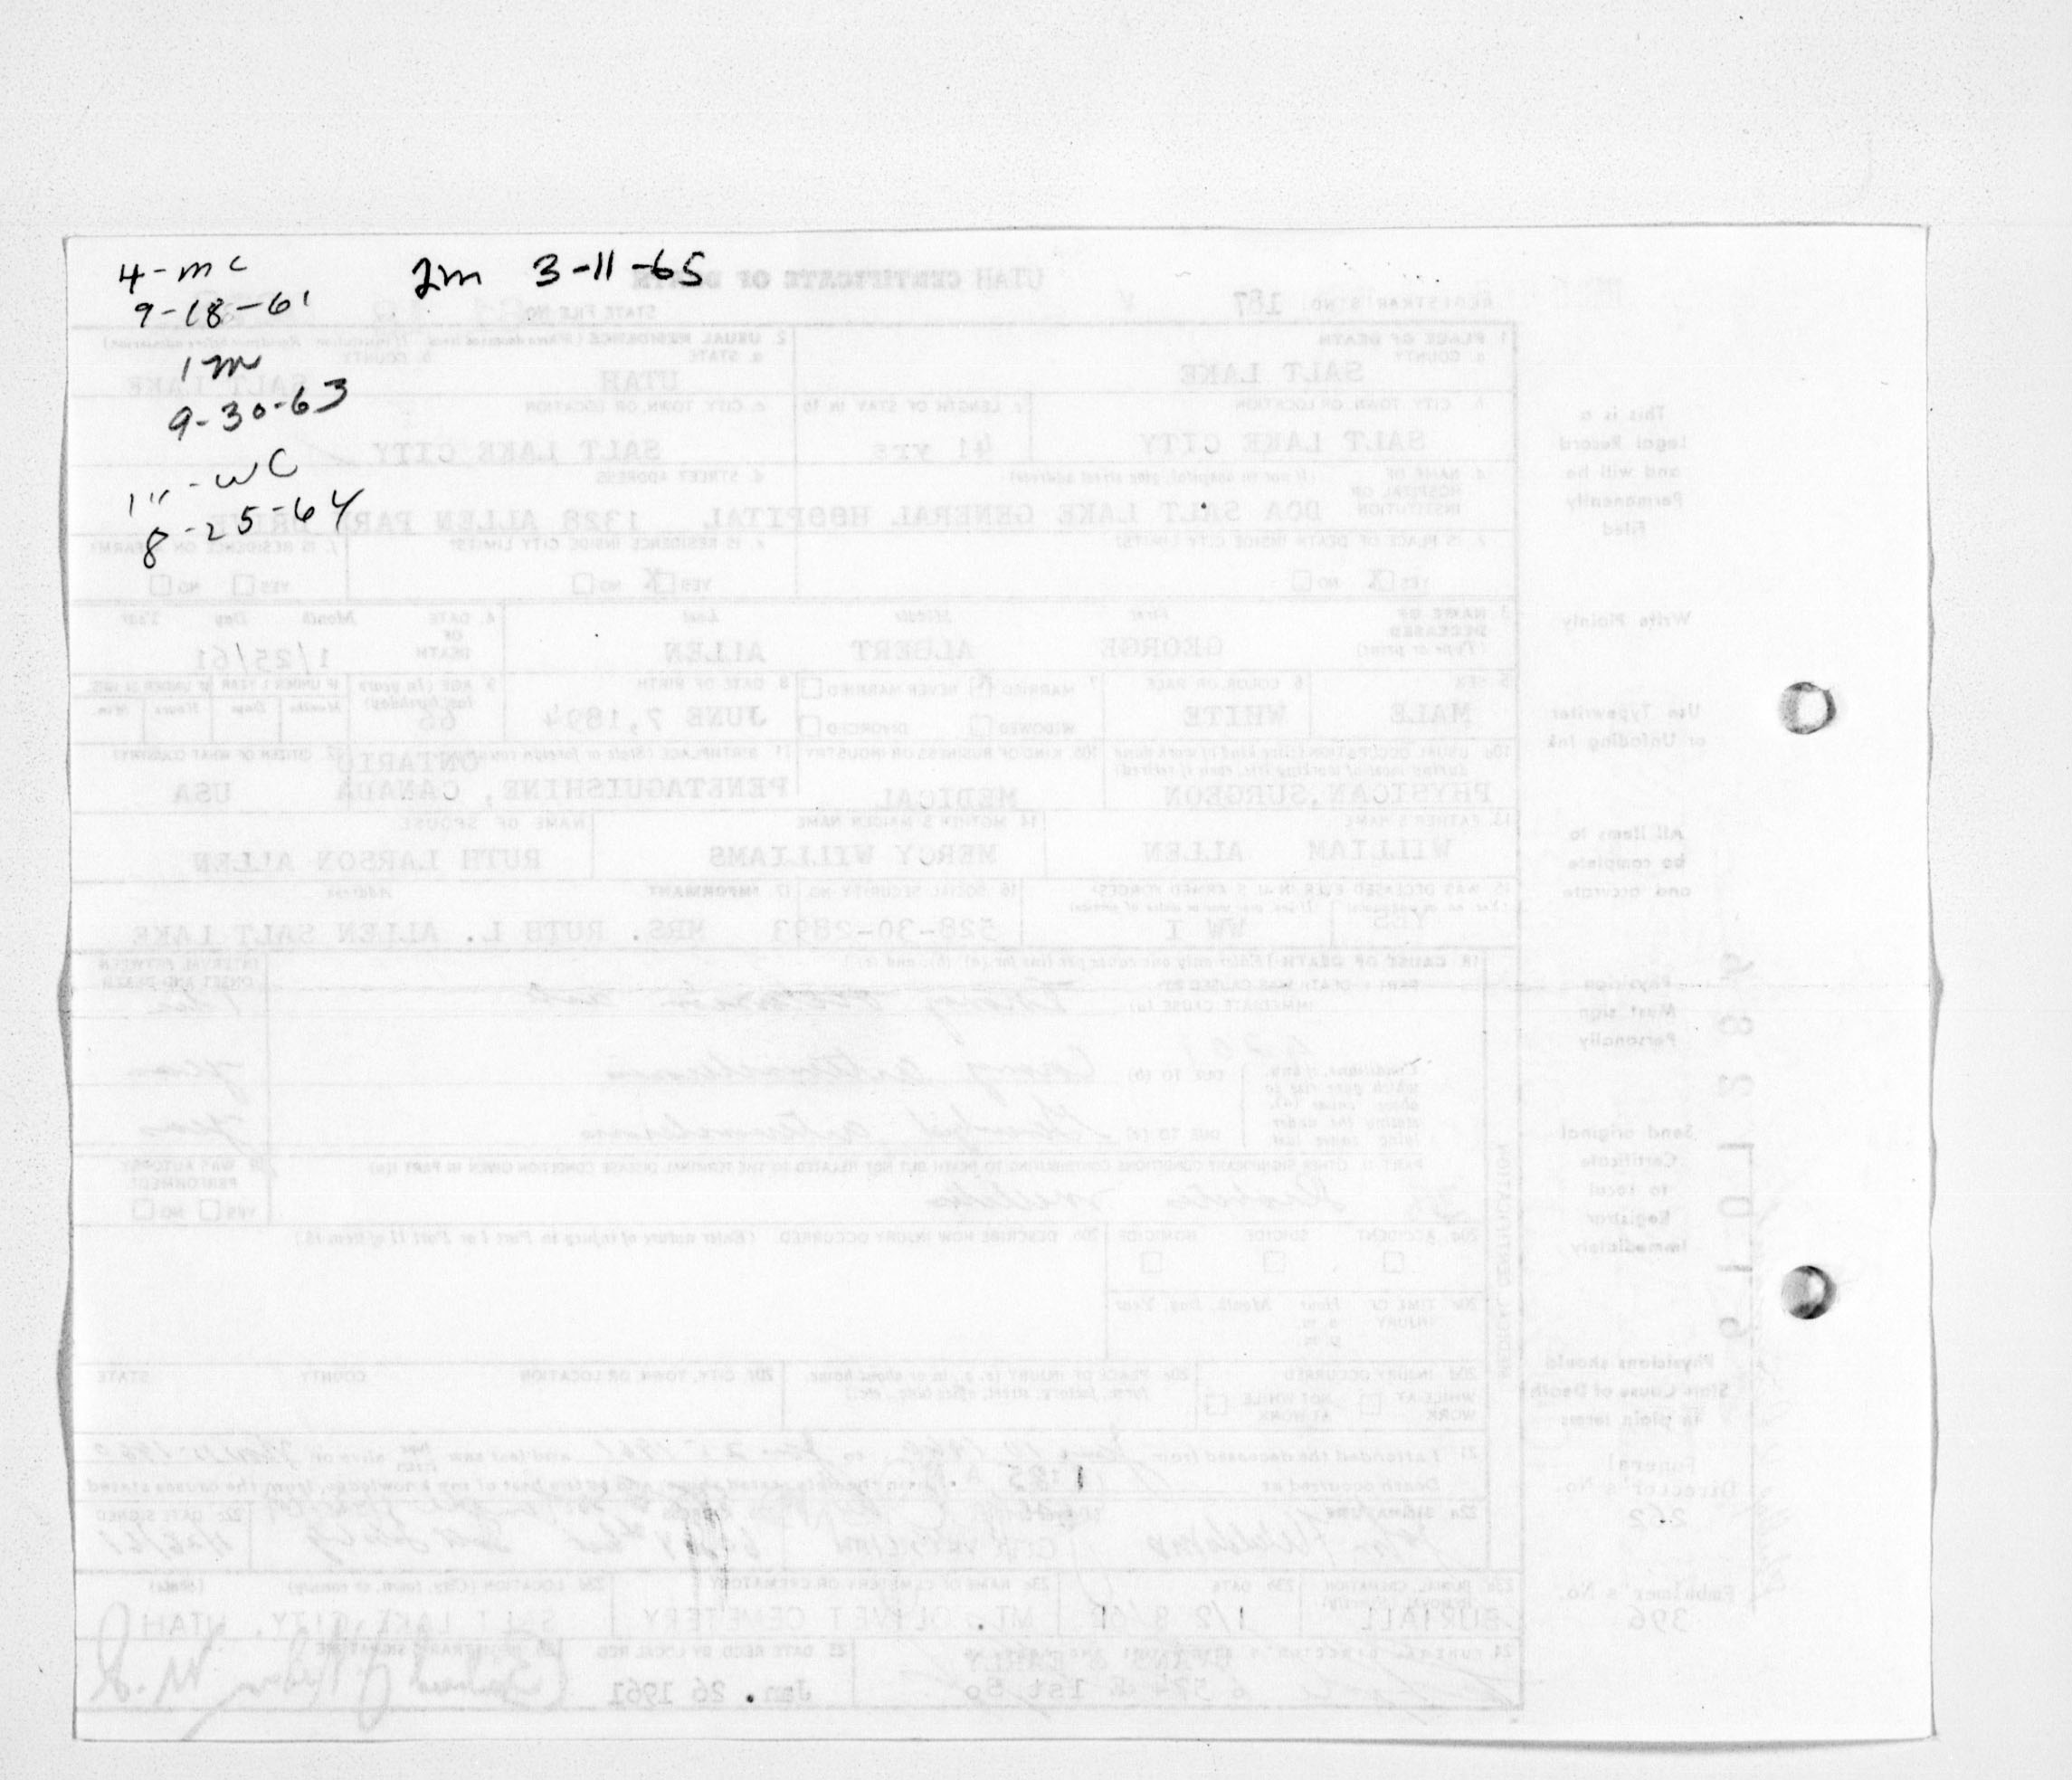 4-mc
9-18-61
1m
9-30-63
1" - WC
8-25-64
2m 3-11-65
UTAH CERTIFICATE OF DEATH
REGISTRAR'S NO. 187
STATE FILE NO.
1. PLACE OF DEATH
a. COUNTY
SALT LAKE
2. USUAL RESIDENCE (Where deceased lived. If institution: Residence before admission)
a. STATE
UTAH
b. COUNTY
SALT LAKE
b. CITY, TOWN, OR LOCATION
SALT LAKE CITY
c. LENGTH OF STAY IN 1b
41 yrs
c. CITY, TOWN, OR LOCATION
SALT LAKE CITY
d. NAME OF HOSPITAL OR INSTITUTION (If not in hospital, give street address)
DOA SALT LAKE GENERAL HOSPITAL
d. STREET ADDRESS
1328 ALLEN PARK DRIVE
e. IS PLACE OF DEATH INSIDE CITY LIMITS?
YES X NO
e. IS RESIDENCE INSIDE CITY LIMITS?
YES X NO
f. IS RESIDENCE ON A FARM?
YES NO
3. NAME OF DECEASED (Type or print)
First Middle Last
GEORGE ALBERT ALLEN
4. DATE OF DEATH Month Day Year
1/25/61
5. SEX
MALE
6. COLOR OR RACE
WHITE
7. MARRIED X NEVER MARRIED
WIDOWED DIVORCED
8. DATE OF BIRTH
JUNE 7, 1894
9. AGE (In years last birthday)
66
IF UNDER 1 YEAR IF UNDER 24 HRS.
Months Days Hours Min.
10a. USUAL OCCUPATION (Give kind of work done during most of working life, even if retired)
PHYSICAN, SURGEON
10b. KIND OF BUSINESS OR INDUSTRY
MEDICAL
11. BIRTHPLACE (State or foreign country)
ONTARIO
PENETAGUISHINE, CANADA
12. CITIZEN OF WHAT COUNTRY?
USA
13. FATHER'S NAME
WILLIAM ALLEN
14. MOTHER'S MAIDEN NAME
MERCY WILLIAMS
NAME OF SPOUSE
RUTH LARSON ALLEN
15. WAS DECEASED EVER IN U. S. ARMED FORCES?
YES WW I
16. SOCIAL SECURITY NO.
528-30-2893
17. INFORMANT Address
MRS. RUTH L. ALLEN SALT LAKE
18. CAUSE OF DEATH (Enter only one cause per line for (a), (b), and (c).)
INTERVAL BETWEEN ONSET AND DEATH
PART I. DEATH WAS CAUSED BY:
IMMEDIATE CAUSE (a)
Conditions, if any, which gave rise to above cause (a), stating the underlying cause last
DUE TO (b)
DUE TO (c)
PART II. OTHER SIGNIFICANT CONDITIONS CONTRIBUTING TO DEATH BUT NOT RELATED TO THE TERMINAL DISEASE CONDITION GIVEN IN PART I(a)
19. WAS AUTOPSY PERFORMED?
YES NO
20a. ACCIDENT SUICIDE HOMICIDE
20b. DESCRIBE HOW INJURY OCCURRED. (Enter nature of injury in Part I or Part II of item 18.)
20c. TIME OF INJURY Hour Month, Day, Year
a. m.
p. m.
20d. INJURY OCCURRED
WHILE AT WORK NOT WHILE AT WORK
20e. PLACE OF INJURY (e. g., in or about home, farm, factory, street, office bldg., etc.)
20f. CITY, TOWN, OR LOCATION COUNTY STATE
21. I attended the deceased from
and last saw alive on
Death occurred at
22a. SIGNATURE
22c. DATE SIGNED
1/26/61
23a. BURIAL, CREMATION
BURIAL
23b. DATE
1/28/61
23c. NAME OF CEMETERY OR CREMATORY
MT. OLIVET CEMETERY
23d. LOCATION (City, town, or county) (State)
SALT LAKE CITY, UTAH
24. FUNERAL DIRECTOR'S SIGNATURE
EVANS & EARLY
574 E 1st So
25. DATE RECD BY LOCAL REG
Jan. 26 1961
26. REGISTRAR'S SIGNATURE
MEDICAL CERTIFICATION
This is a Legal Record and will be Permanently Filed
Write Plainly
Use Typewriter or Unfading Ink
All items to be complete and accurate
Physician Must sign Personally
Send original Certificate to Local Registrar Immediately
Physicians should State Cause of Death in plain terms
Funeral Director's No.
262
Embalmer's No.
396